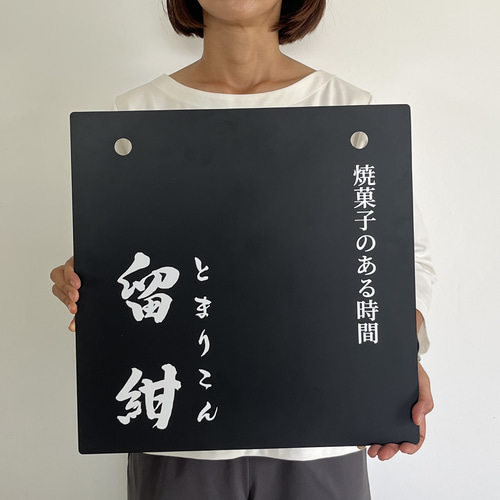 焼菓子のある時間
とまりこん
留紺